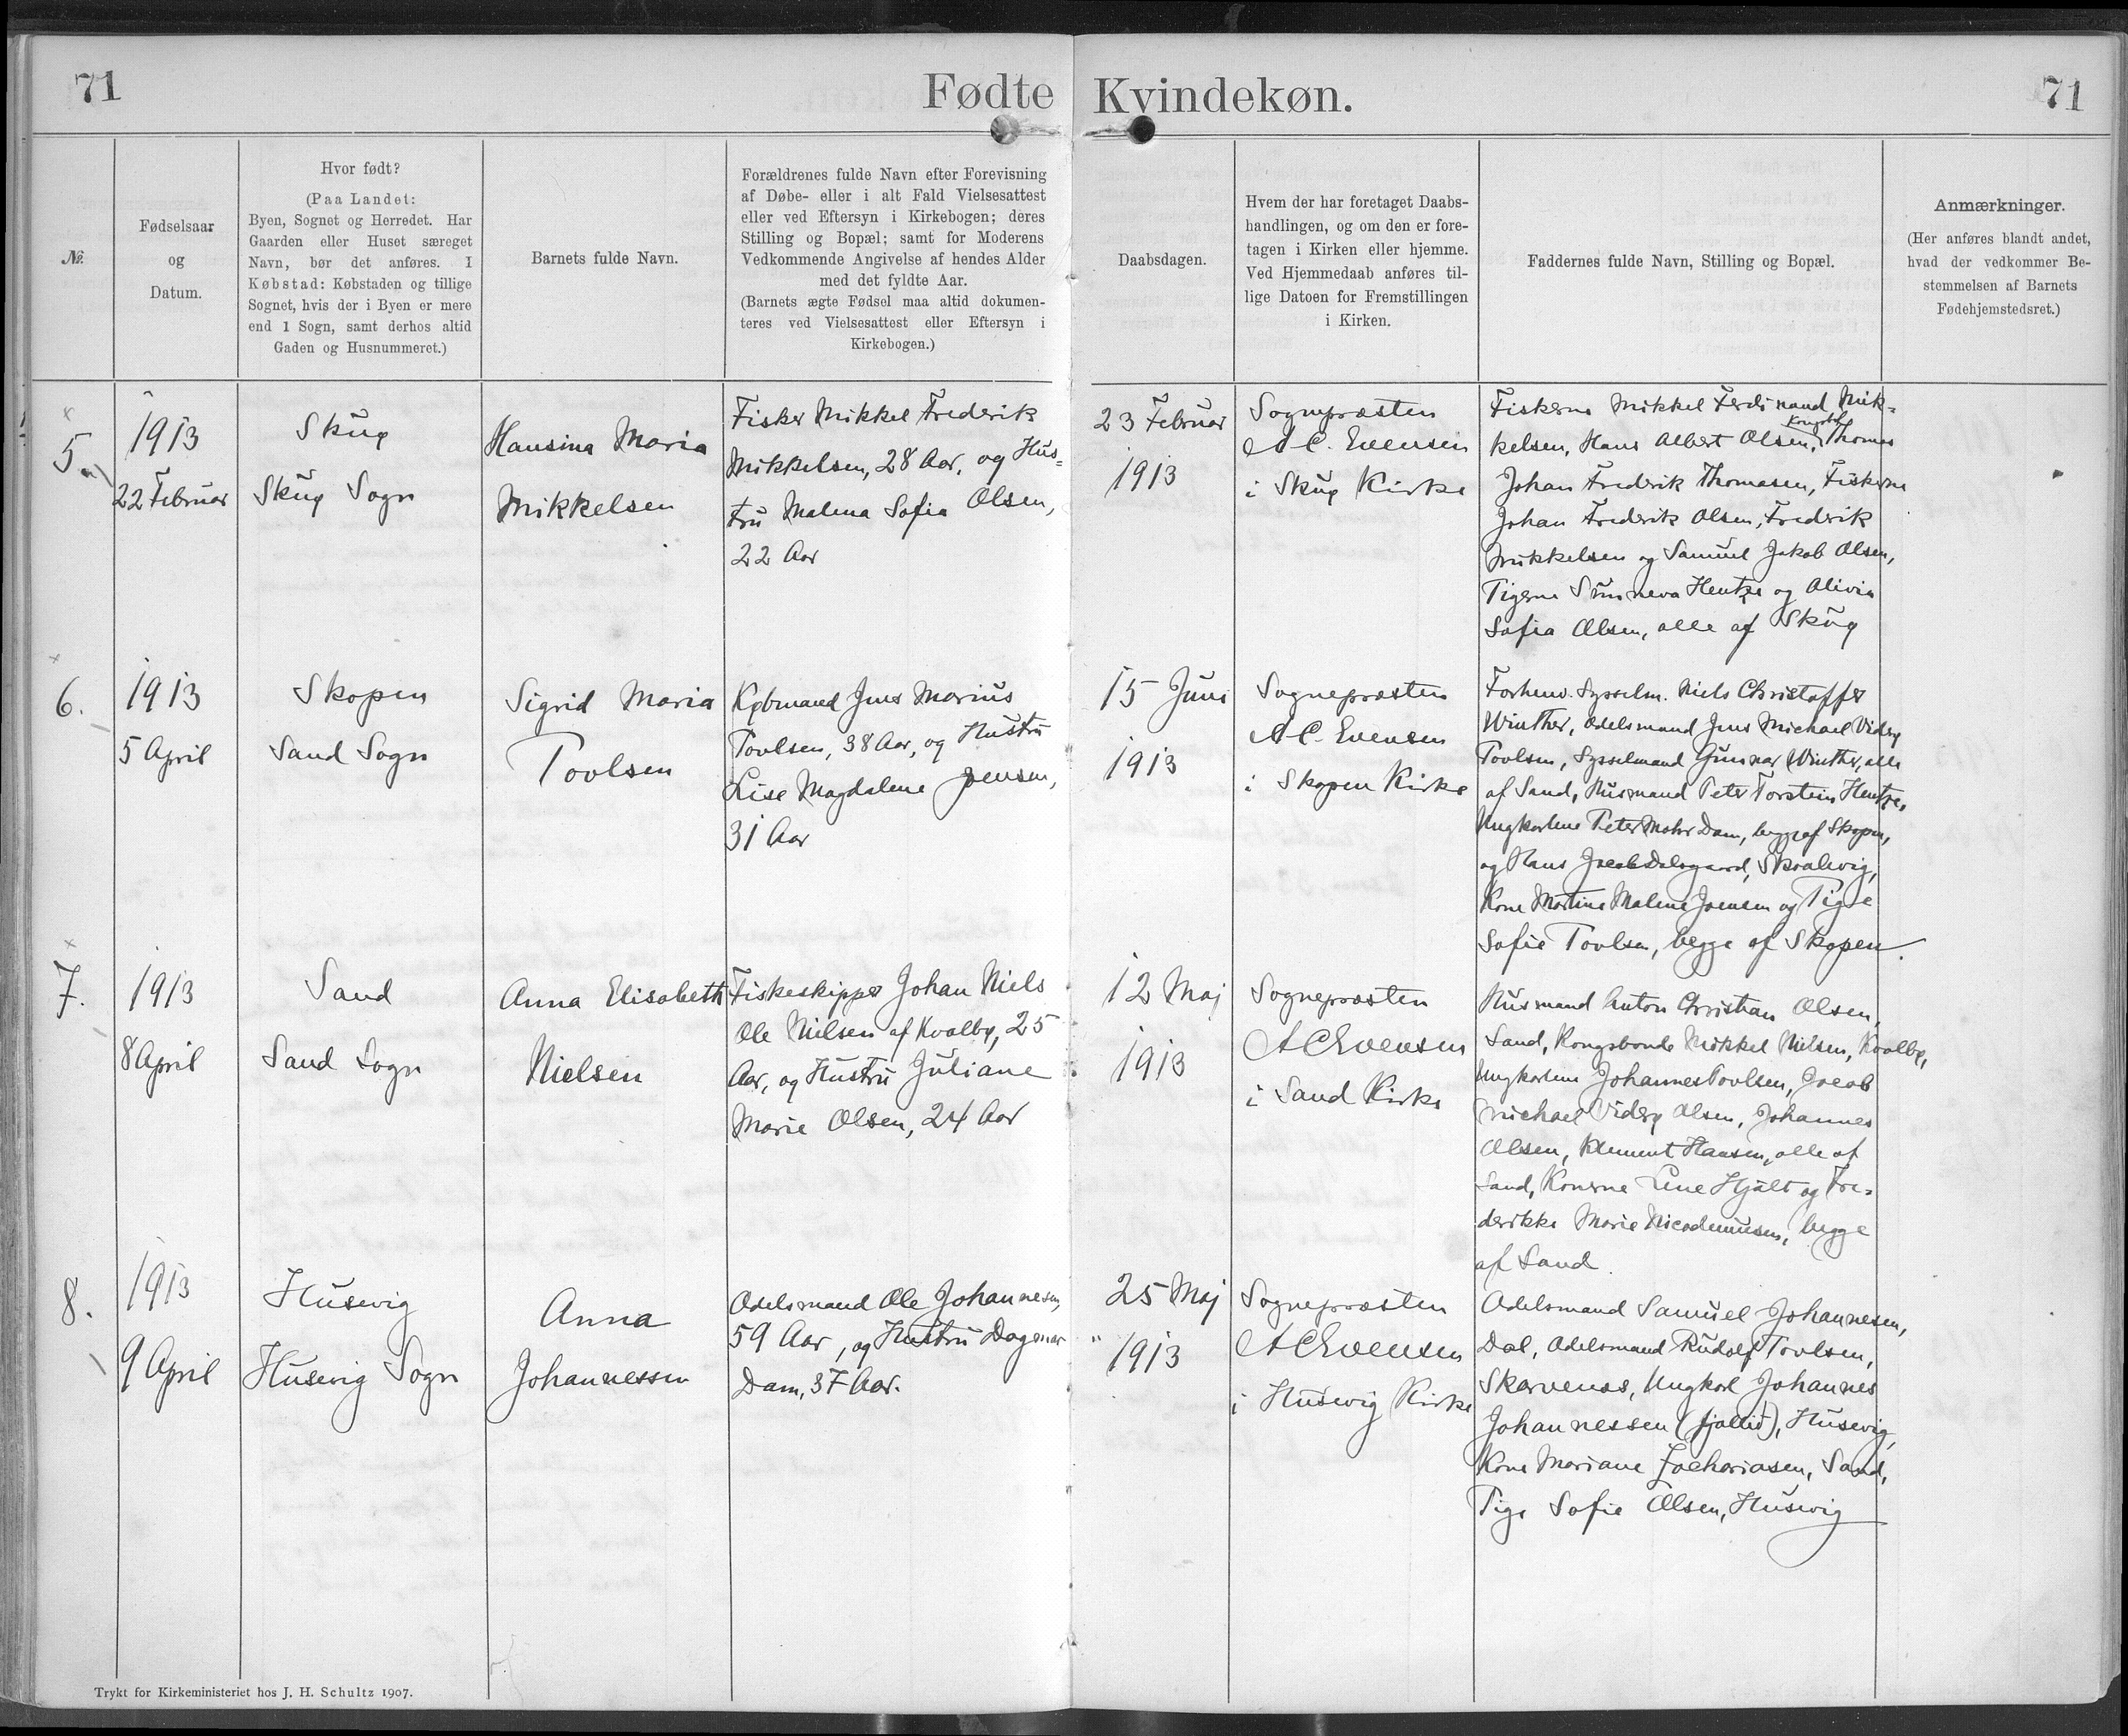 71
Fødte
Kvindekøn.
71
№
Fødselsaar
og
Datum.
Hvor født?
(Paa Landet:
Byen, Sognet og Herredet. Har
Gaarden eller Huset særeget
Navn, bør det anføres. I
Købstad: Købstaden og tillige
Sognet, hvis der i Byen er mere
end 1 Sogn, samt derhos altid
Gaden og Husnummeret.)
Barnets fulde Navn.
Forældrenes fulde Navn efter Forevisning
af Døbe- eller i alt Fald Vielsesattest
eller ved Eftersyn i Kirkebogen; deres
Stilling og Bopæl; samt for Moderens
Vedkommende Angivelse af hendes Alder
med det fyldte Aar.
(Barnets ægte Fødsel maa altid dokumen-
teres ved Vielsesattest eller Eftersyn i
Kirkebogen.)
Daabsdagen.
Hvem der har foretaget Daabs-
handlingen, og om den er fore-
tagen i Kirken eller hjemme.
Ved Hjemmedaab anføres til-
lige Datoen for Fremstillingen
i Kirken.
Faddernes fulde Navn, Stilling og Bopæl.
Anmærkninger.
(Her anføres blandt andet,
hvad der vedkommer Be-
stemmelsen af Barnets
Fødehjemstedsret.)
×
5.
1913
22 Februar
Skuø
Skuø Sogn
Hansina Maria
Mikkelsen
Fisker Mikkel Frederik
Mikkelsen, 28 Aar, og Hus-
tru Malena Sofia Olsen,
22 Aar
23 Februar
1913
Sognepræsten
A.C. Evensen
i Skuø Kirke
Fiskerne Mikkel Ferdinand Mik-
kelsen, Hans Albert Olsen, Thomas
Johan Frederik Thomasen, Fiskerne
Johan Frederik Olsen, Frederik
Mikkelsen og Samuel Jakob Olsen,
Pigerne Sunneva Hentze og Olivia
Sofia Olsen, alle af Skuø
×
6.
1913
5 April
Skopen
Sand Sogn
Sigrid Maria
Poulsen
Købmand Jens Marius
Poulsen, 38 Aar, og Hustru
Lise Magdalene Joensen,
31 Aar
15 Juni
1913
Sognepræsten
A.C. Evensen
i Skopen Kirke
Forhenv. Sysselm. Niels Christoffer
Winther, Odelsmand Jens Michael Viderø
Poulsen, Sysselmand Gunnar Winther, alle
af Sand, Husmand Peter Torstein Hentze,
Ungkarlene Peter Mohr Dam, begge af Skopen,
og Hans Jacob Dalsgaard, Skaalevig,
Kone Martine Malene Joensen og Pige
Sofie Poulsen, begge af Skopen.
×
7.
1913
8 April
Sand
Sand Sogn
Anna Elisabeth
Nielsen
Fiskeskipper Johan Niels
Ole Nielsen af Kvalbø, 25
Aar, og Hustru Juliane
Marie Olsen, 24 Aar
12 Maj
1913
Sognepræsten
A C Evensen
i Sand Kirke
Husmand Anton Christian Olsen,
Sand, Kongsbonde Mikkel Nielsen, Kvalbø,
Ungkarlene Johannes Poulsen, Jacob
Michael Viderø Olsen, Johannes
Olsen, Klement Hansen, alle af
Sand, Konerne Lene Hjalt og Fre-
derikke Marie Nicodemusen, begge
af Sand.
8.
1913
9 April
Husevig
Husevig Sogn
Anna
Johannessen
Odelsmand Ole Johannesen,
59 Aar, og Hustru Dagmar
Dam, 37 Aar.
25 Maj
1913
Sognepræsten
A C Evensen
i Husevig Kirke
Odelsmand Samuel Johannesen,
Dal, Odelsmand Rudolf Poulsen,
Skarvenæs, Ungkarl Johannes
Johannessen (fjallið), Husevig,
Kone Mariane Zachariasen, Sand,
Pige Sofie Olsen, Husevig
Trykt for Kirkeministeriet hos J. H. Schultz 1907.